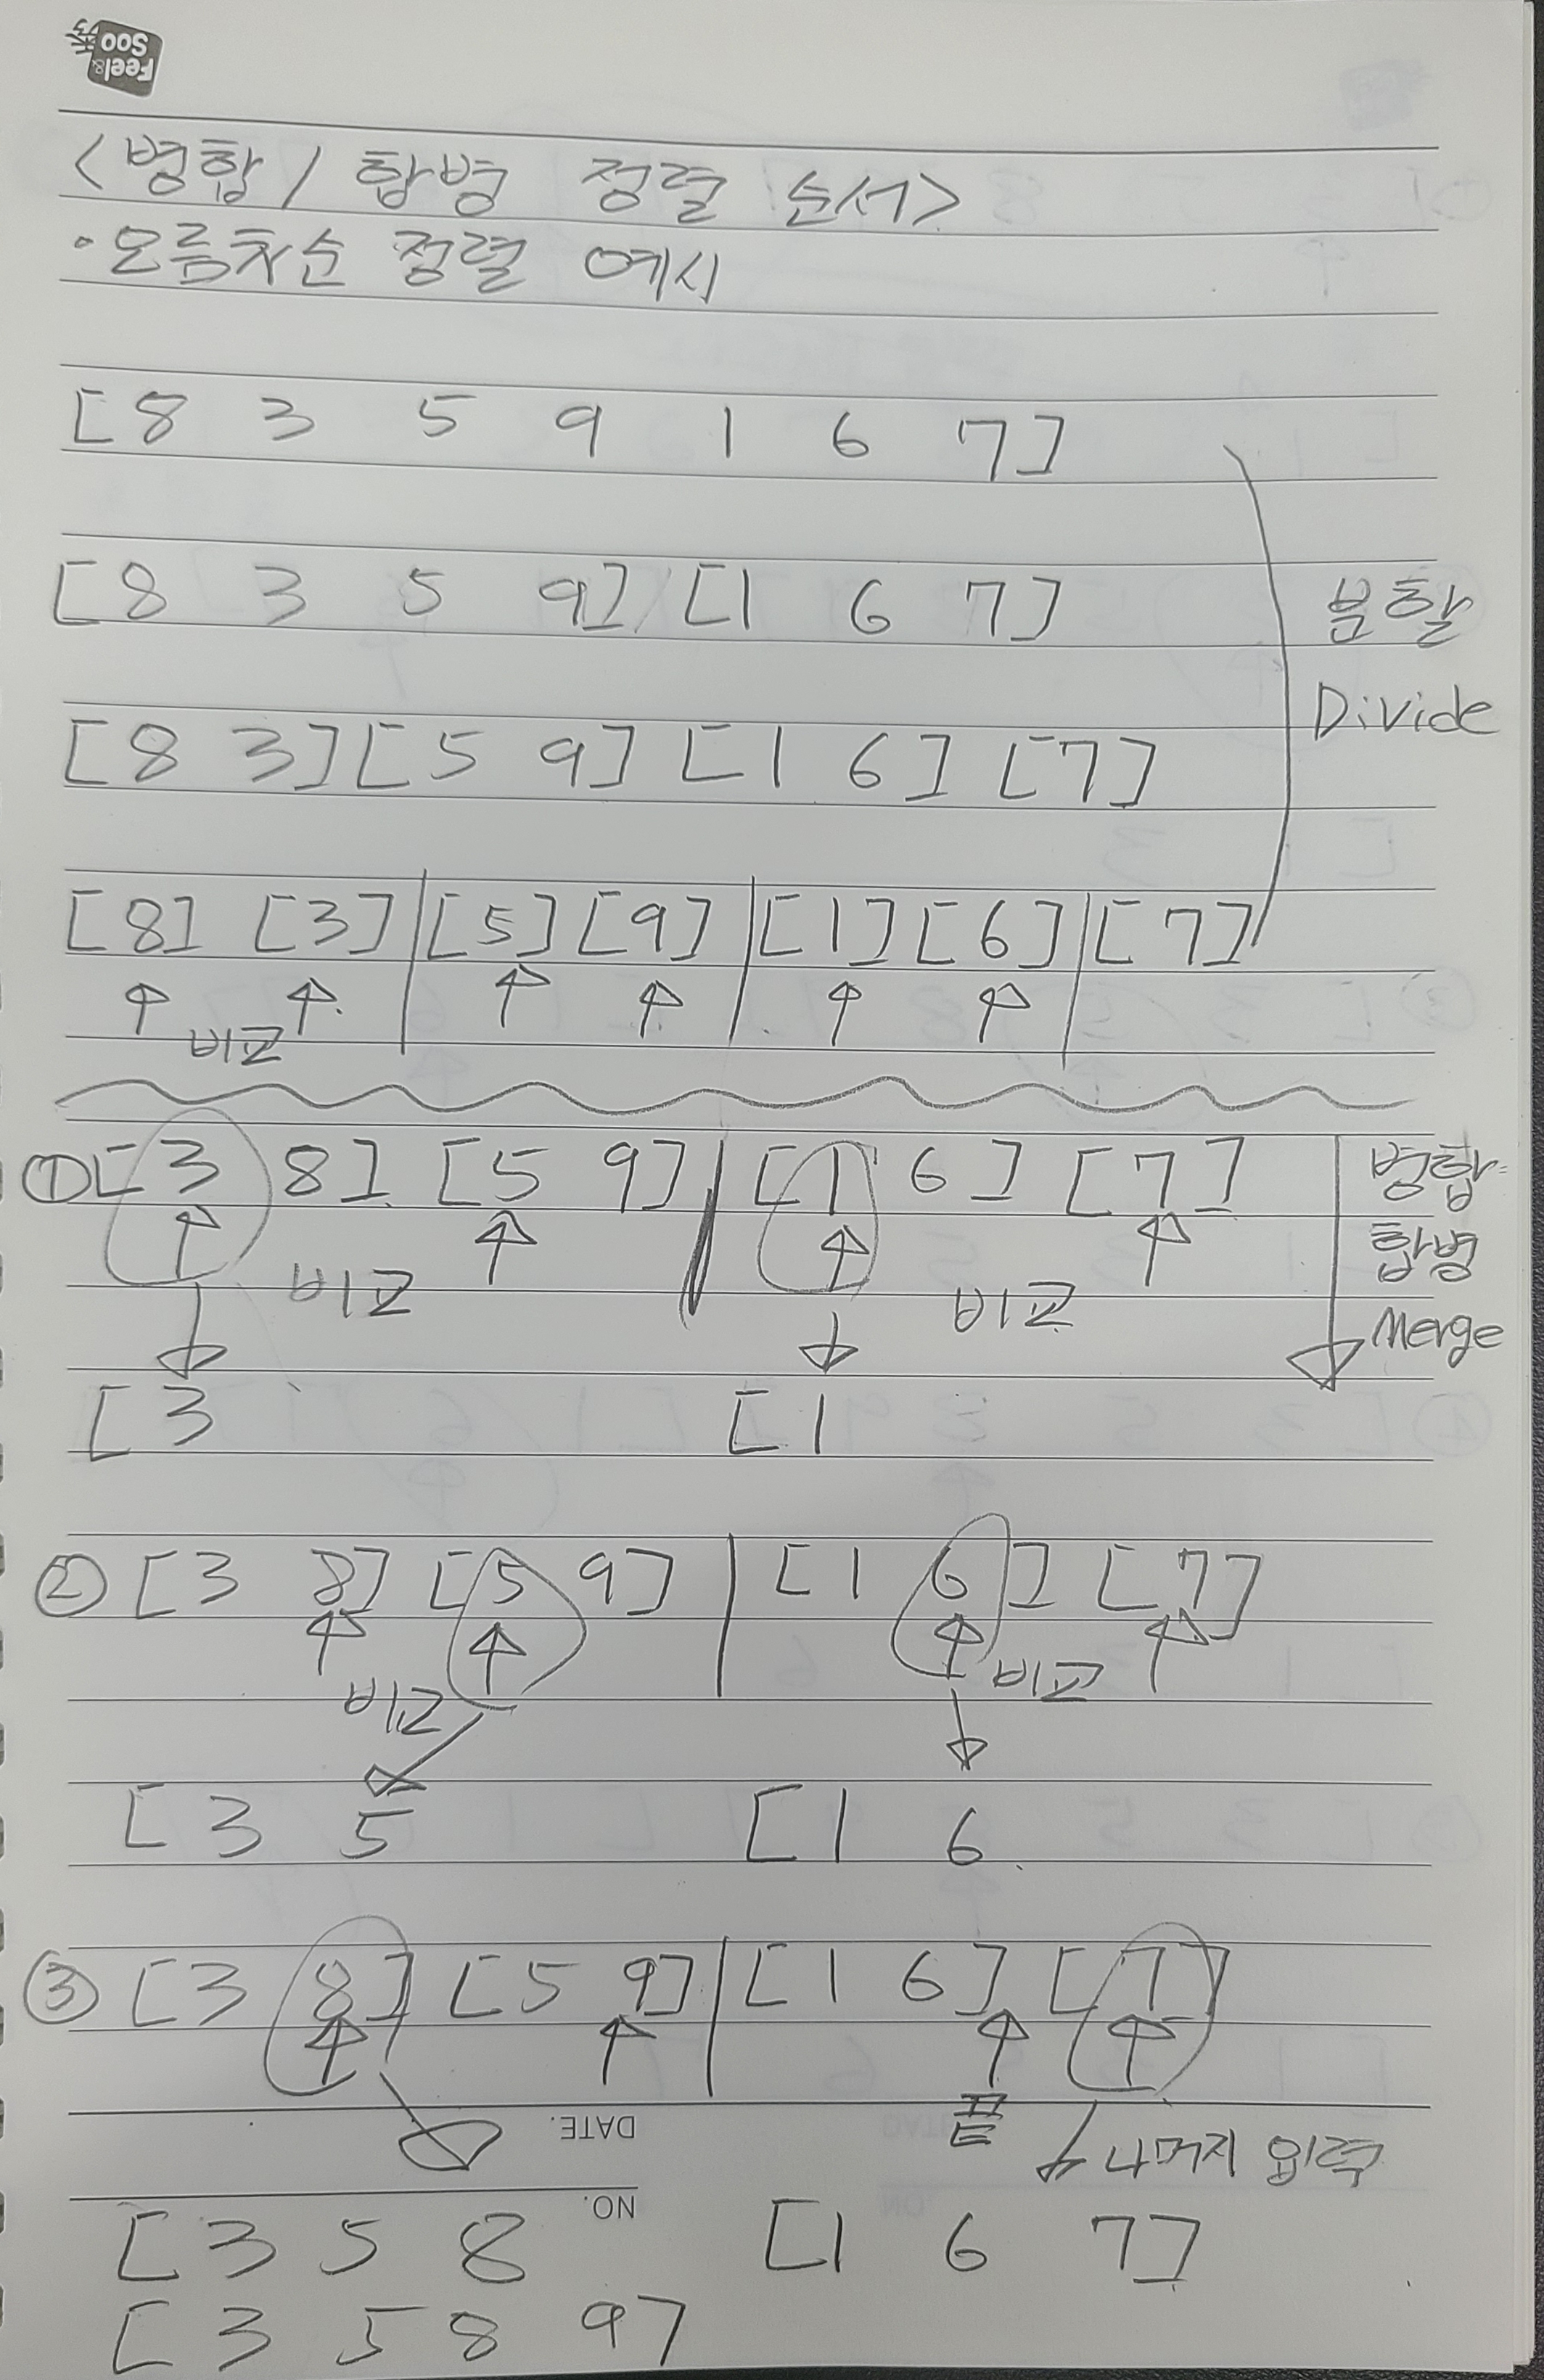 Feel& Soo
<병합 / 합병 정렬 순서>
·오름차순 정렬 예시
[8 3 5 9 1 6 7]
[8 3 5 9] [1 6 7] 분할
Divide
[8 3] [5 9] [1 6] [7]
[8] [3] [5] [9] [1] [6] [7]
비교
① [3 8] [5 9] [1 6] [7] 병합
합병
비교 비교 Merge
[3 [1
② [3 8] [5 9] [1 6] [7]
비교 비교
[3 5 [1 6
③ [3 8] [5 9] [1 6] [7]
DATE. 끝 나머지 입력
NO.
[3 5 8 [1 6 7]
[3 5 8 9]